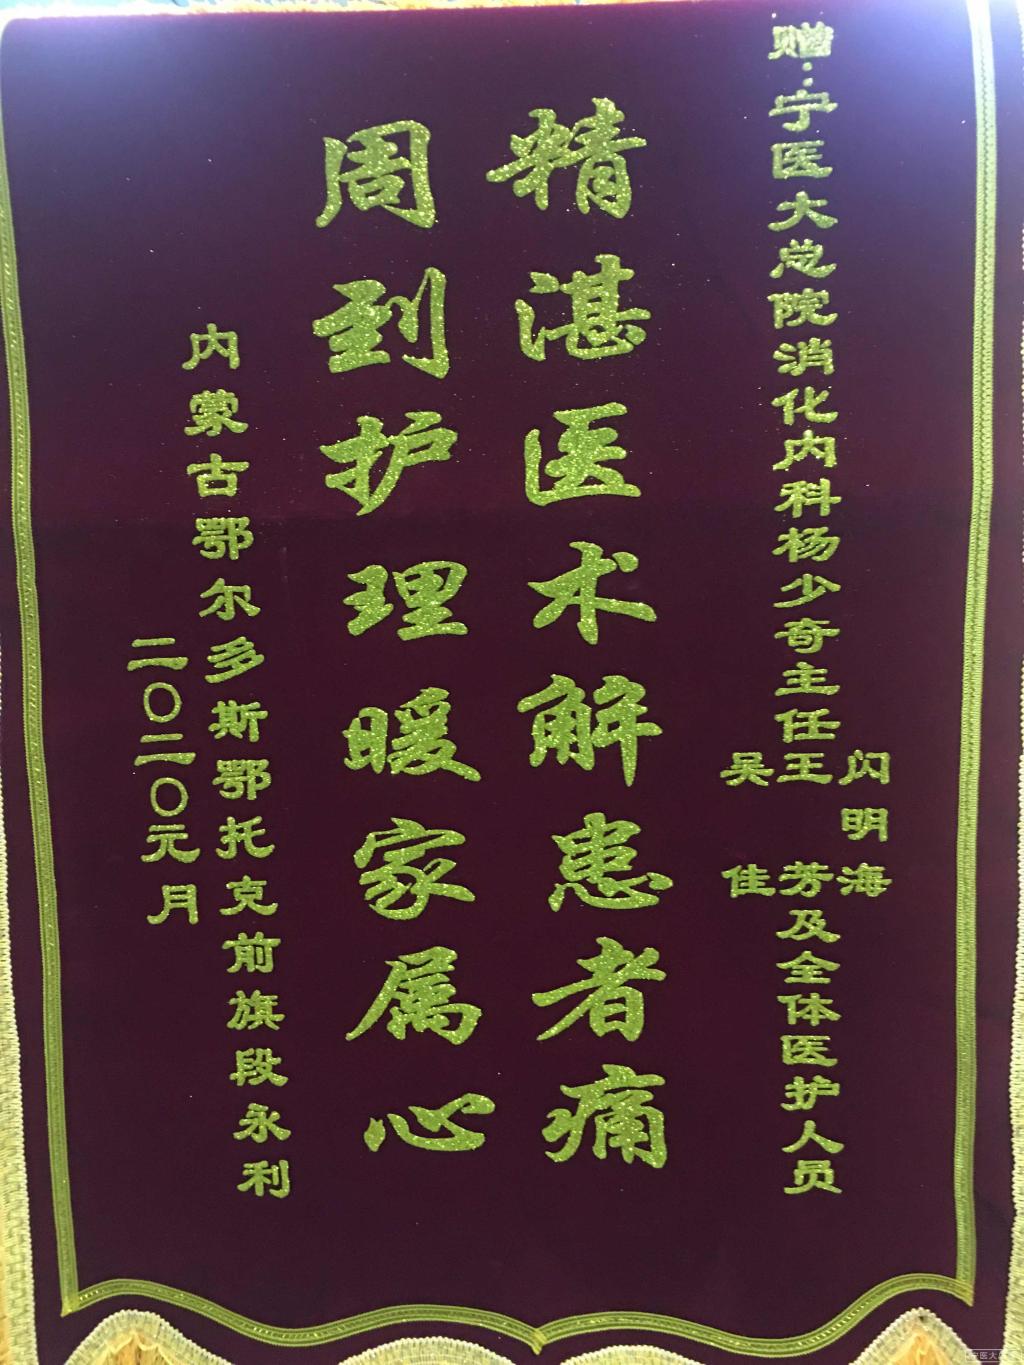 赠:宁医大总院消化内科杨少奇主任
闪明海
王芳
吴佳
及全体医护人员
精湛医术解患者痛
周到护理暖家属心
内蒙古鄂尔多斯鄂托克前旗段永利
二〇二〇元月